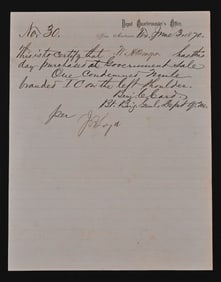 Depot Quartermaster's Office,
No. 30. San Antonio Tx. June 3rd 1870.
This is to certify that has this
day purchased at Government Sale
One Condemned Mule
branded I C on the left shoulder.
Benj. C. Card.
Bt. Brig. Genl. Depot Q.M.
per